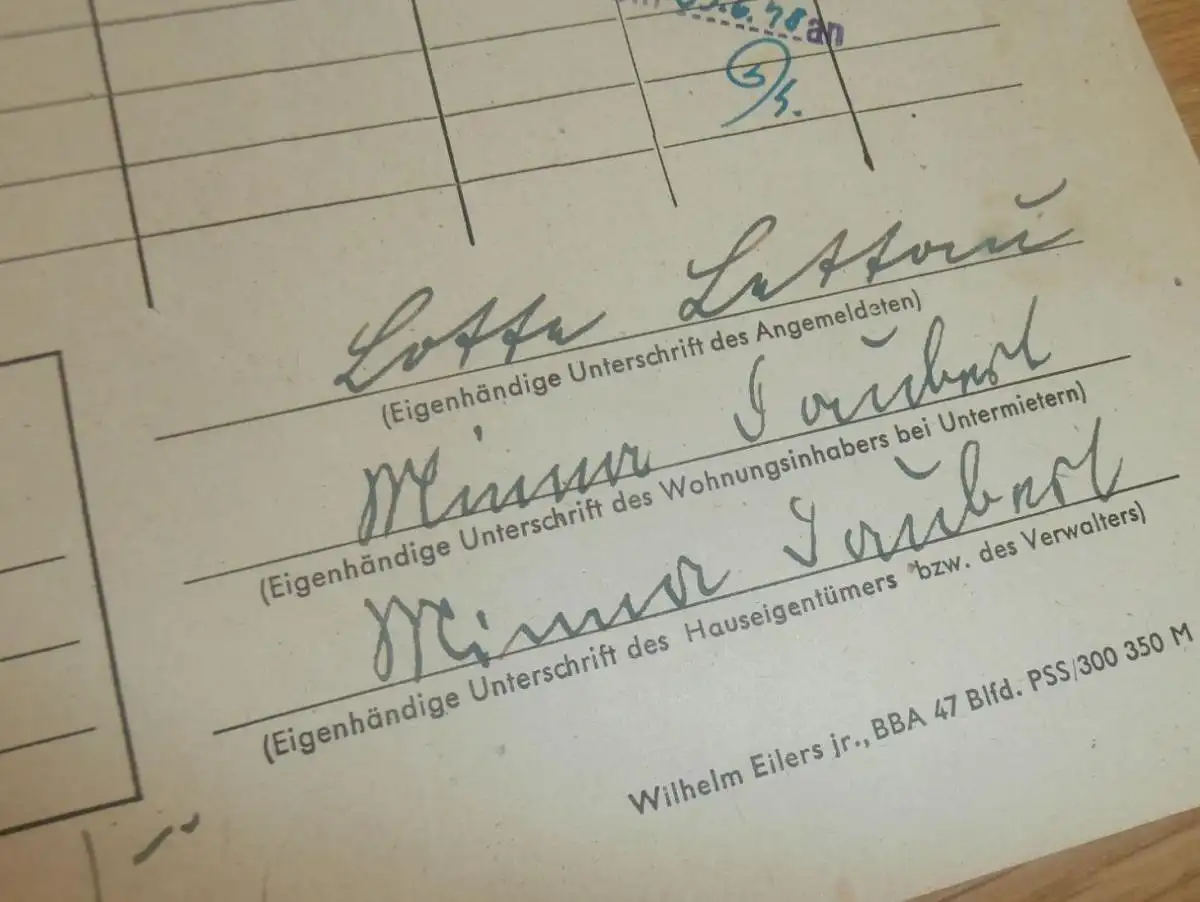 6.48 an
Lotte Lettau
(Eigenhändige Unterschrift des Angemeldeten)
Minna Taubert
(Eigenhändige Unterschrift des Wohnungsinhabers bei Untermietern)
Minna Taubert
(Eigenhändige Unterschrift des Hauseigentümers bzw. des Verwalters)
Wilhelm Eilers jr., BBA 47 Blfd. PSS/300 350 M